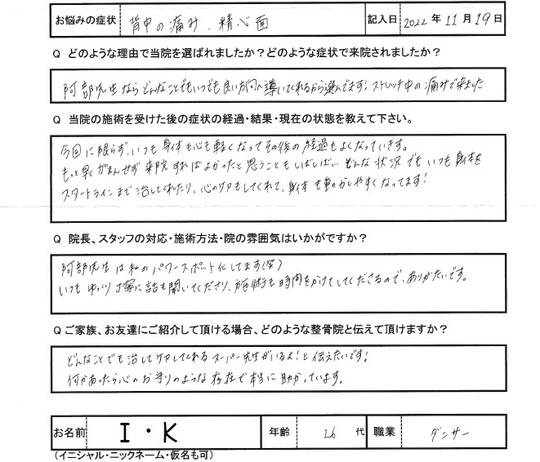 お悩みの症状 背中の痛み、精心面 記入日 2022年11月19日
Q どのような理由で当院を選ばれましたか？どのような症状で来院されましたか？
阿部先生ならどんなことでもいつでも良い方向へ導いてくれるから選んでます！ストレッチ中の痛みで来ました
Q 当院の施術を受けた後の症状の経過・結果・現在の状態を教えて下さい。
今回に限らず、いつも身体も心も軽くなってその後の経過もよくなっていきます。
もっと早くがまんせず来院すればよかったと思うこともしばしば… どんな状況でもいつも身体を
スタートラインまで治してくれたり、心のケアもしてくれて、身体も動かしやすくなってます！
Q 院長、スタッフの対応・施術方法・院の雰囲気はいかがですか？
阿部先生は私のパワースポット化してます(笑)
いつもゆっくり丁寧に話も聞いてくださり、施術も時間をかけてしてくださるので、ありがたいです。
Q ご家族、お友達にご紹介して頂ける場合、どのような整骨院と伝えて頂けますか？
どんなことでも治してケアしてくれるスーパー先生がいるよ！と伝えたいです！
何かあったら心のお守りのような存在で本当に助かっています。
お名前 I・K 年齢 26代 職業 ダンサー
(イニシャル・ニックネーム・仮名も可)